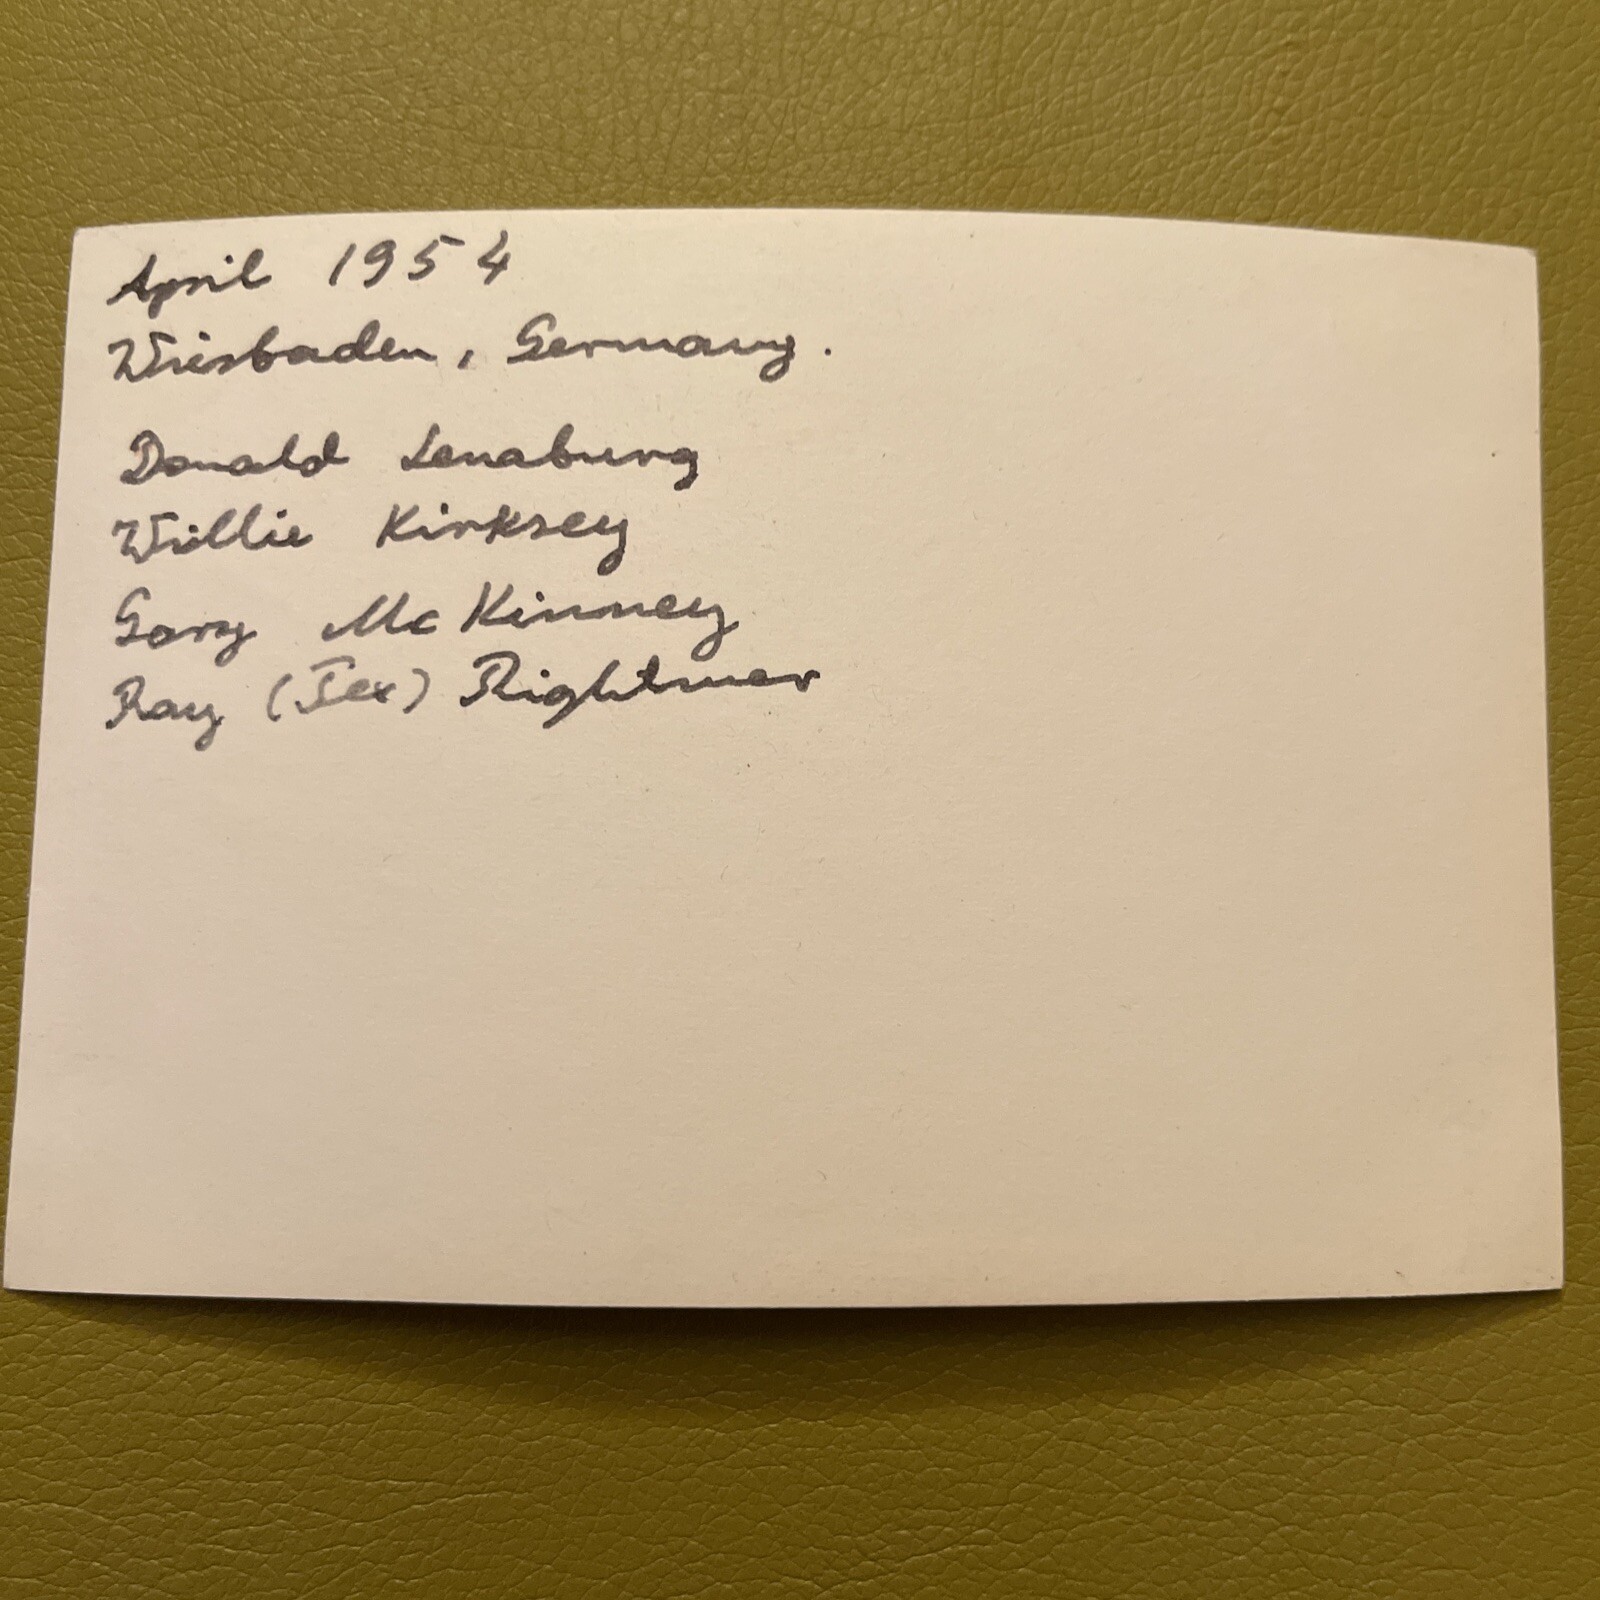 April 1954
Wiesbaden, Germany.
Donald Lenaburg
Willie Kirksey
Gary McKinney
Ray (Tex) Rightmer